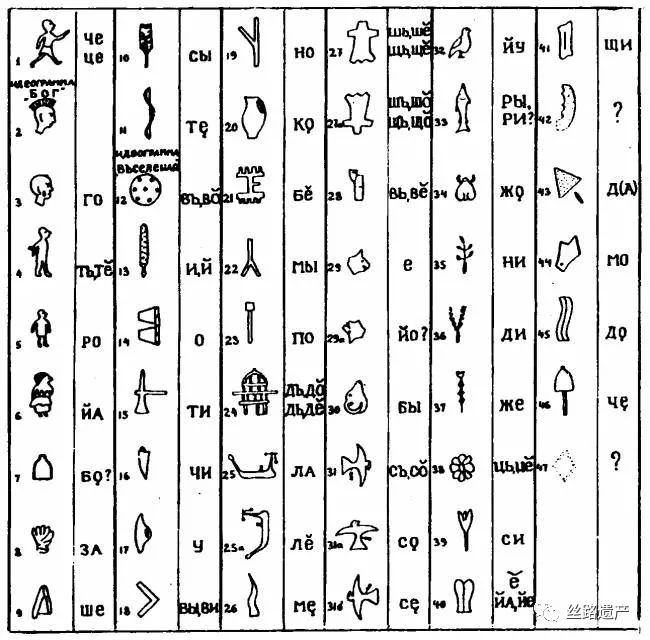 1 ЧЕ ЦЕ 10 СЫ 19 НО 27 ШЬ,ШӖ ЩЬ,ЩӖ 32 ЙУ 41 ЩИ
ИДЕОГРАММА "БОГ"
2 11 ТЕ̨ 20 КО̨ 27а ШЪ,ШО̆ ЩЪ,ЩО̆ 33 РЫ, РИ? 42 ?
ИДЕОГРАММА ВЪСЕЛЕНАЙ
3 ГО 12 ВЪ,ВО̆ 21 БӖ 28 ВЬ,ВӖ 34 ЖО̨ 43 Д(А)
4 ТЬ,ТӖ 13 И,Й 22 МЫ 29 Е 35 НИ 44 МО
5 РО 14 О 23 ПО 29а ЙО? 36 ДИ 45 ДО̨
6 ЙА 15 ТИ 24 ДЪ,ДО̆ ДЬ,ДӖ 30 БЫ 37 ЖЕ 46 ЧЕ̨
7 БО̨? 16 ЧИ 25 ЛА 31 СЪ,СО̆ 38 ЦЬ,ЦӖ 47 ?
8 ЗА 17 У 25а ЛӖ 31а СО̨ 39 СИ
9 ШЕ 18 ВЫ,ВИ 26 МЕ̨ 31б СЕ̨ 40 Ӗ ЙА,ЙЕ
丝路遗产